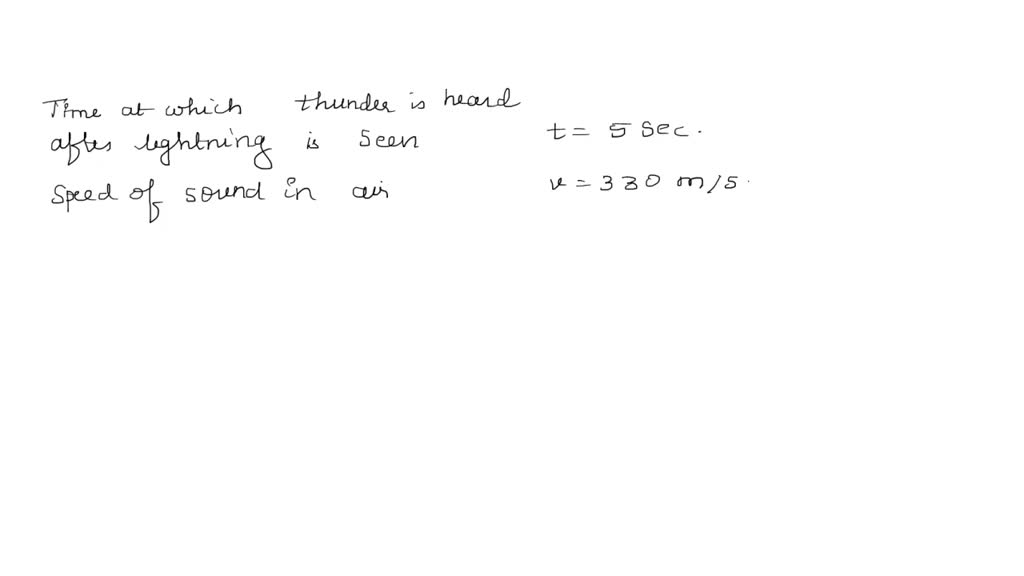 Time at which thunder is heard
after lightning is seen t = 5 sec.
Speed of sound in air v = 330 m/s.